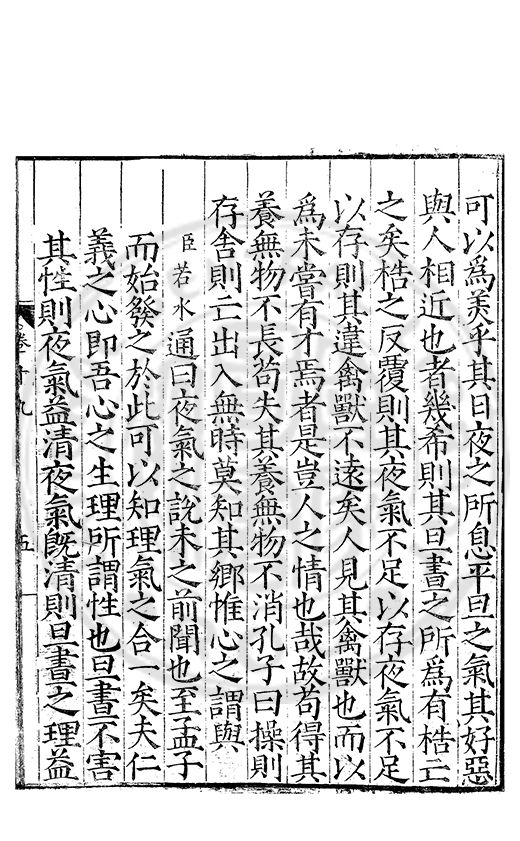 可以爲美乎其日夜之所息平旦之氣其好惡
與人相近也者幾希則其旦晝之所爲有梏亡
之矣梏之反覆則其夜氣不足以存夜氣不足
以存則其違禽獸不遠矣人見其禽獸也而以
爲未嘗有才焉者是豈人之情也哉故苟得其
養無物不長苟失其養無物不消孔子曰操則
存舍則亡出入無時莫知其鄉惟心之謂與
臣若水通曰夜氣之說未之前聞也至孟子
而始發之於此可以知理氣之合一矣夫仁
義之心即吾心之生理所謂性也旦晝不害
其性則夜氣益清夜氣旣清則旦晝之理益
卷十九
五